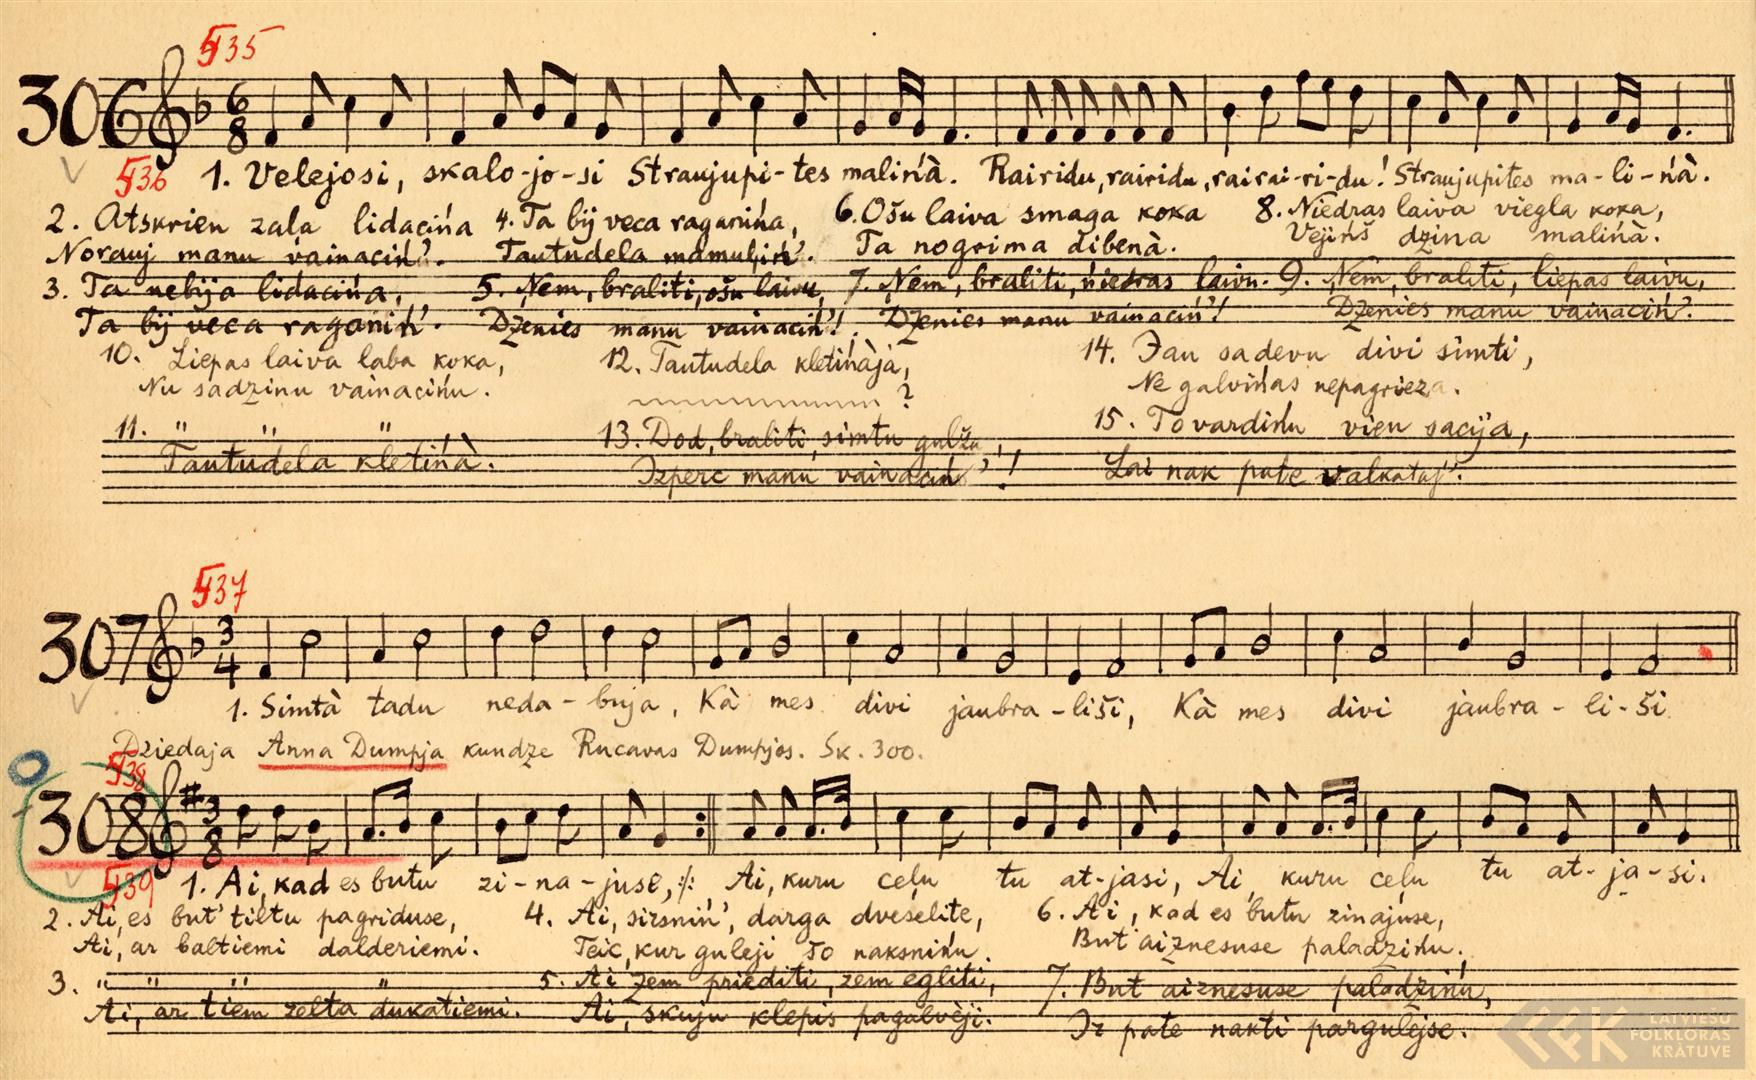 535
306 6 8
536 1. Velejosi, skalo-jo-si Straujupi-tes malińà. Rairidu, rairidu, rairai-ri-du! Straujupites ma-li-ńà.
2. Atskrien zala lidacińa
Norauj manu vainaciń'.
3. Ta nebija lidacińa,
Ta bij veca raganiń'.
4. Ta bij veca raganińa,
Tautudela mamuliń'.
5. Ńem, braliti, ošu laivu,
Dzenies manu vainaciń'!
6. Ošu laiva smaga koka
Ta nogrima dibenà.
7. Ńem, braliti, niedras laivu.
Dzenies manu vainaciń'!
8. Niedras laiva viegla koka,
Vejińš dzina malińà.
9. Ńem, braliti, liepas laivu,
Dzenies manu vainaciń'.
10. Liepas laiva laba koka,
Nu sadzinu vainacińu.
11. " " "
Tautudela kletińà.
12. Tautudela kletińàja,
?
13. Dod, braliti, simtu gulžu,
Izperc manu vainaciń'!
14. Jau sadevu divi simti,
Ne galvińas nepagrieza.
15. To vardińu vien sacija,
Lai nak pate valkataj'.
537
307 3 4
1. Simtà tadu neda-buja, Kà mes divi jaubra-liši, Kà mes divi jaubra-li-ši
Dziedaja Anna Dumpja kundze Rucavas Dumpjos. Sk. 300.
538
308 3 8
539 1. Ai, kad es butu zi-na-juse, :/: Ai, kuru ceļu tu at-jasi, Ai, kuru ceļu tu at-ja-si.
2. Ai, es but' tiltu pagriduse,
Ai, ar baltiemi dalderiemi.
3. " " " "
Ai, ar tiem zelta dukatiemi.
4. Ai, sirsniń', darga dveselite,
Teic, kur guleji šo naksnińu.
5. Ai zem priediti, zem egliti,
Ai, skuju klepis pagalvèji.
6. Ai, kad es butu zinajuse,
But' aiznesuse paladzińu.
7. But' aiznesuse paladzińu,
Iz pate nakti pargulejse.
LATVIEŠU
FOLKLORAS
KRĀTUVE